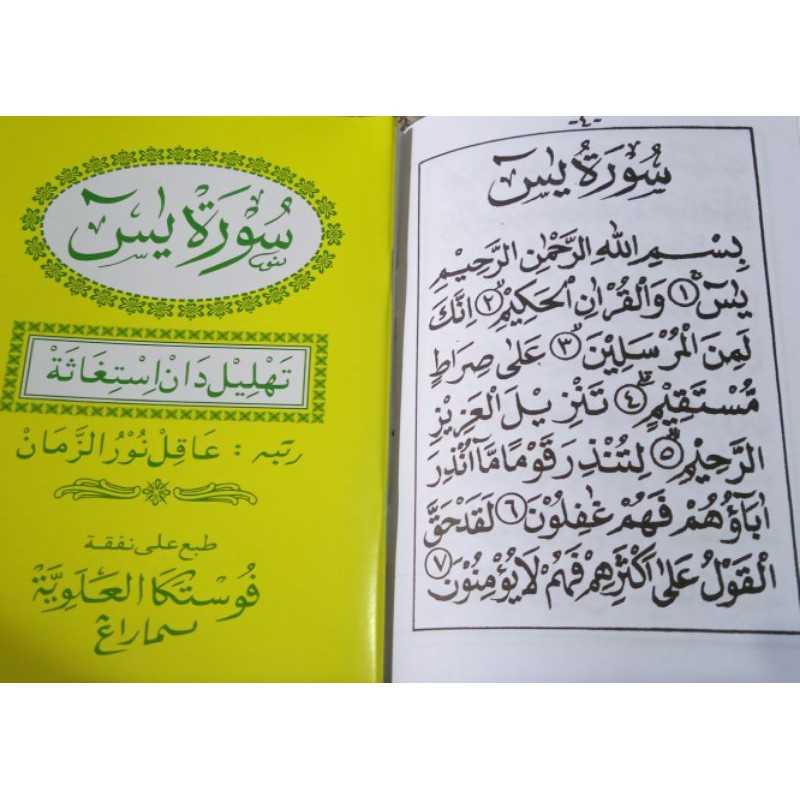 سُوْرَةُ يٰسٓ
تَهْلِيْل دَانْ اِسْتِغَاثَةْ
رتبه : عَاقِلْ نُوْرُ الزَّمَانْ
طبع على نفقة
فُوسْتَكَا الْعَلَوِيَّةْ
سماراڠ
-٤-
سُوْرَةُ يٰسٓ
بِسْمِ اللهِ الرَّحْمٰنِ الرَّحِيْمِ
يٰسٓ ۚ ١ وَالْقُرْاٰنِ الْحَكِيْمِۙ ٢ اِنَّكَ
لَمِنَ الْمُرْسَلِيْنَۙ ٣ عَلٰى صِرَاطٍ
مُّسْتَقِيْمٍۗ ٤ تَنْزِيْلَ الْعَزِيْزِ
الرَّحِيْمِۙ ٥ لِتُنْذِرَ قَوْمًا مَّآ اُنْذِرَ
اٰبَاۤؤُهُمْ فَهُمْ غٰفِلُوْنَ ٦ لَقَدْ حَقَّ
الْقَوْلُ عَلٰٓى اَكْثَرِهِمْ فَهُمْ لَا يُؤْمِنُوْنَ ٧